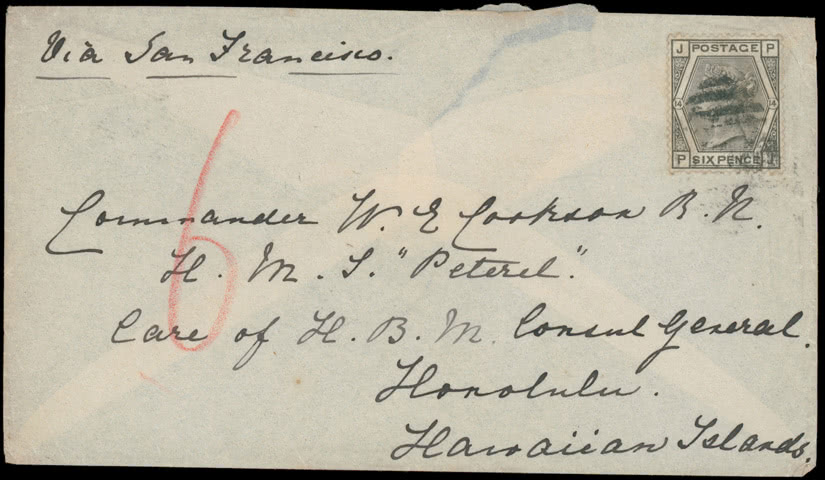 Via San Francisco.
J POSTAGE P
14 14
P SIXPENCE J
6
Commander W. E Cookson R. N.
H. M. S. "Peterel".
Care of H. B. M. Consul General.
Honolulu.
Hawaiian Islands.